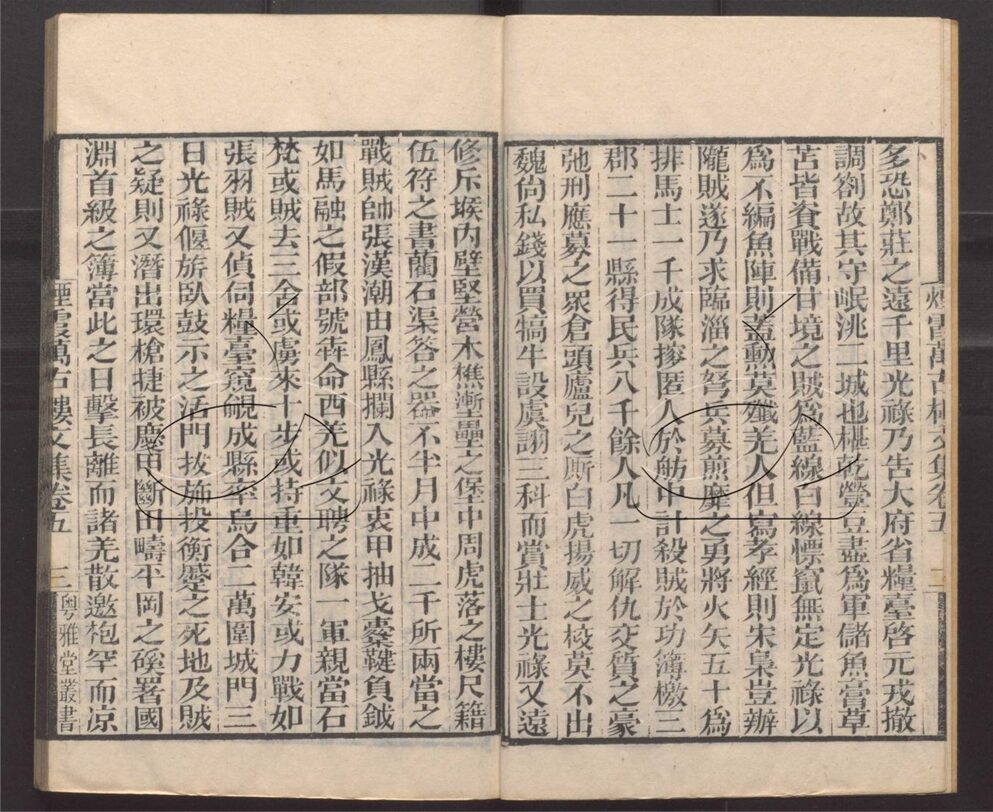 多恐鄭莊之遠千里光祿乃告大府省糧臺啓元戎撤
調劄故其守岷洮二城也椹乾營豆盡爲軍儲魚膏草
苫皆資戰備甘境之賊爲藍線白線慓竄無定光祿以
爲不編魚陣則蓋勳莫殲羌人但寫孝經則宋梟豈辦
隴賊遂乃求臨淄之弩兵募煎靡之勇將火矢五十爲
排馬士一千成隊掾匿人於舫中計殺賊於功簿檄三
郡二十一縣得民兵八千餘人凡一切解仇交質之豪
弛刑應募之眾倉頭廬兒之廝白虎揚威之校莫不出
魏尙私錢以買犒牛設虞詡三科而賞壯士光祿又遠
煙霞萬古樓文集卷五
二
修斥堠內壁堅營木樵塹壘之保中周虎落之樓尺籍
伍符之書藺石渠答之器不半月中成二千所兩當之
戰賊帥張漢潮由鳳縣攔入光祿衷甲抽戈櫜鞬負鉞
如馬融之假部號犇命西羌似文聘之隊一軍親當石
梵或賊去三舍或虜來十步或持重如韓安或力戰如
張羽賊又偵伺糧臺窺覦成縣率烏合二萬圍城門三
日光祿偃旂臥鼓示之活門拔旆投衡蹙之死地及賊
之疑則又潛出環槍捷被慶甲斷田疇平岡之磎署國
淵首級之簿當此之日擊長離而諸羌散邀枹罕而凉
煙霞萬古樓文集卷五
三
粵雅堂叢書